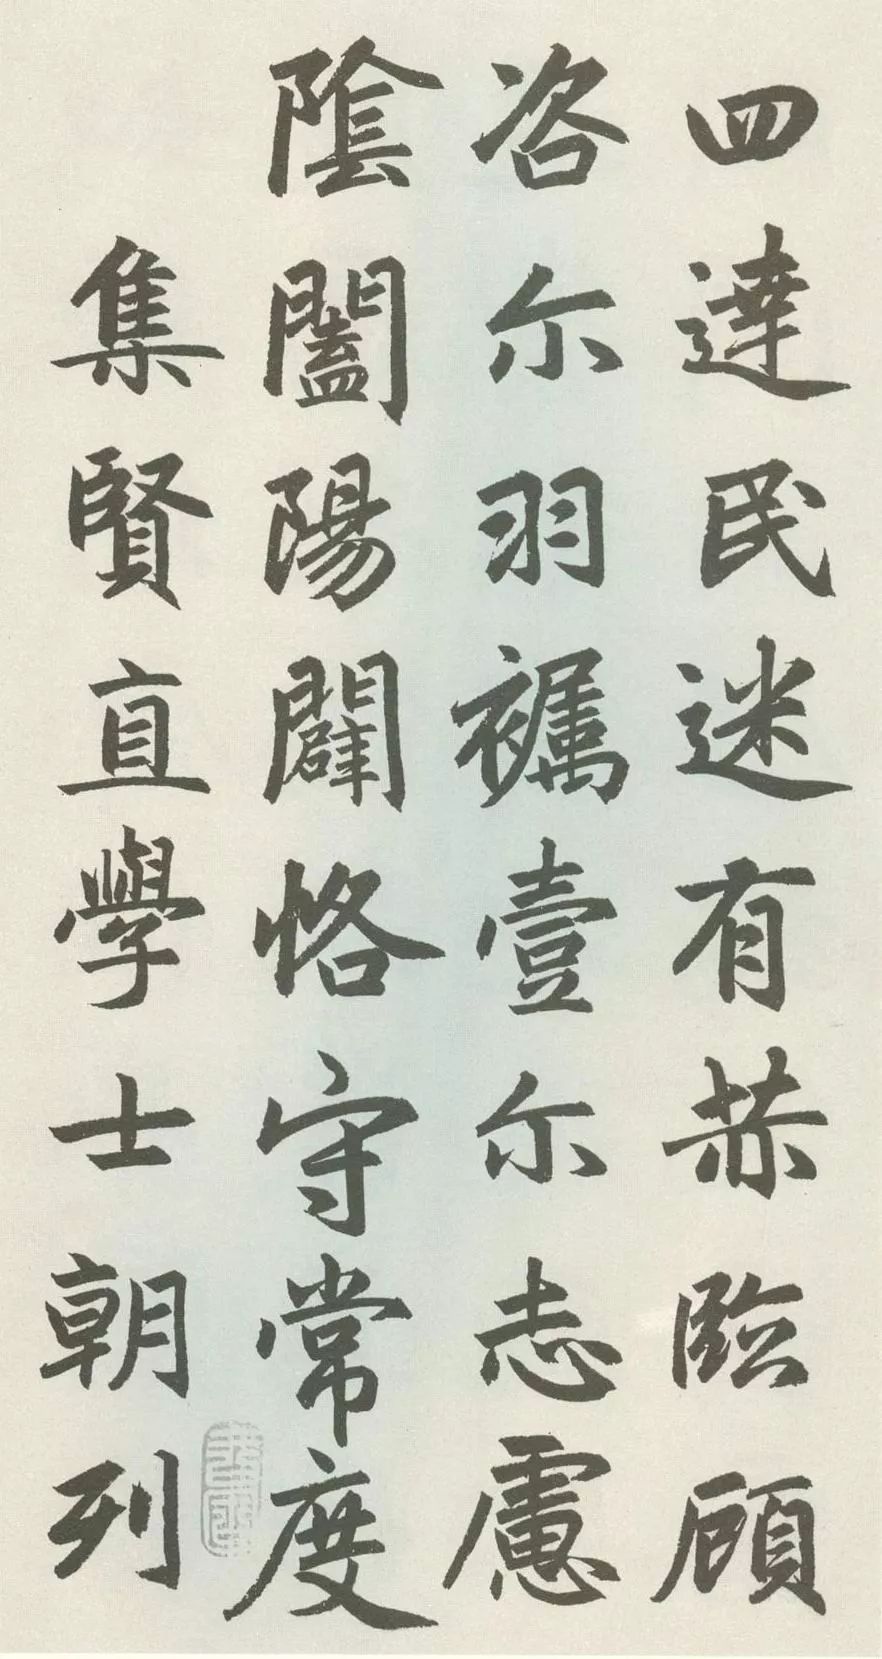 四達民迷有赫臨顧
咨尓羽襹壹尓志慮
陰闔陽闢恪守常度
集賢直學士朝列